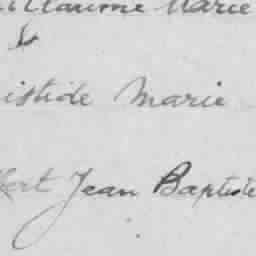 illaume Marie
istide Marie
bert Jean Baptiste